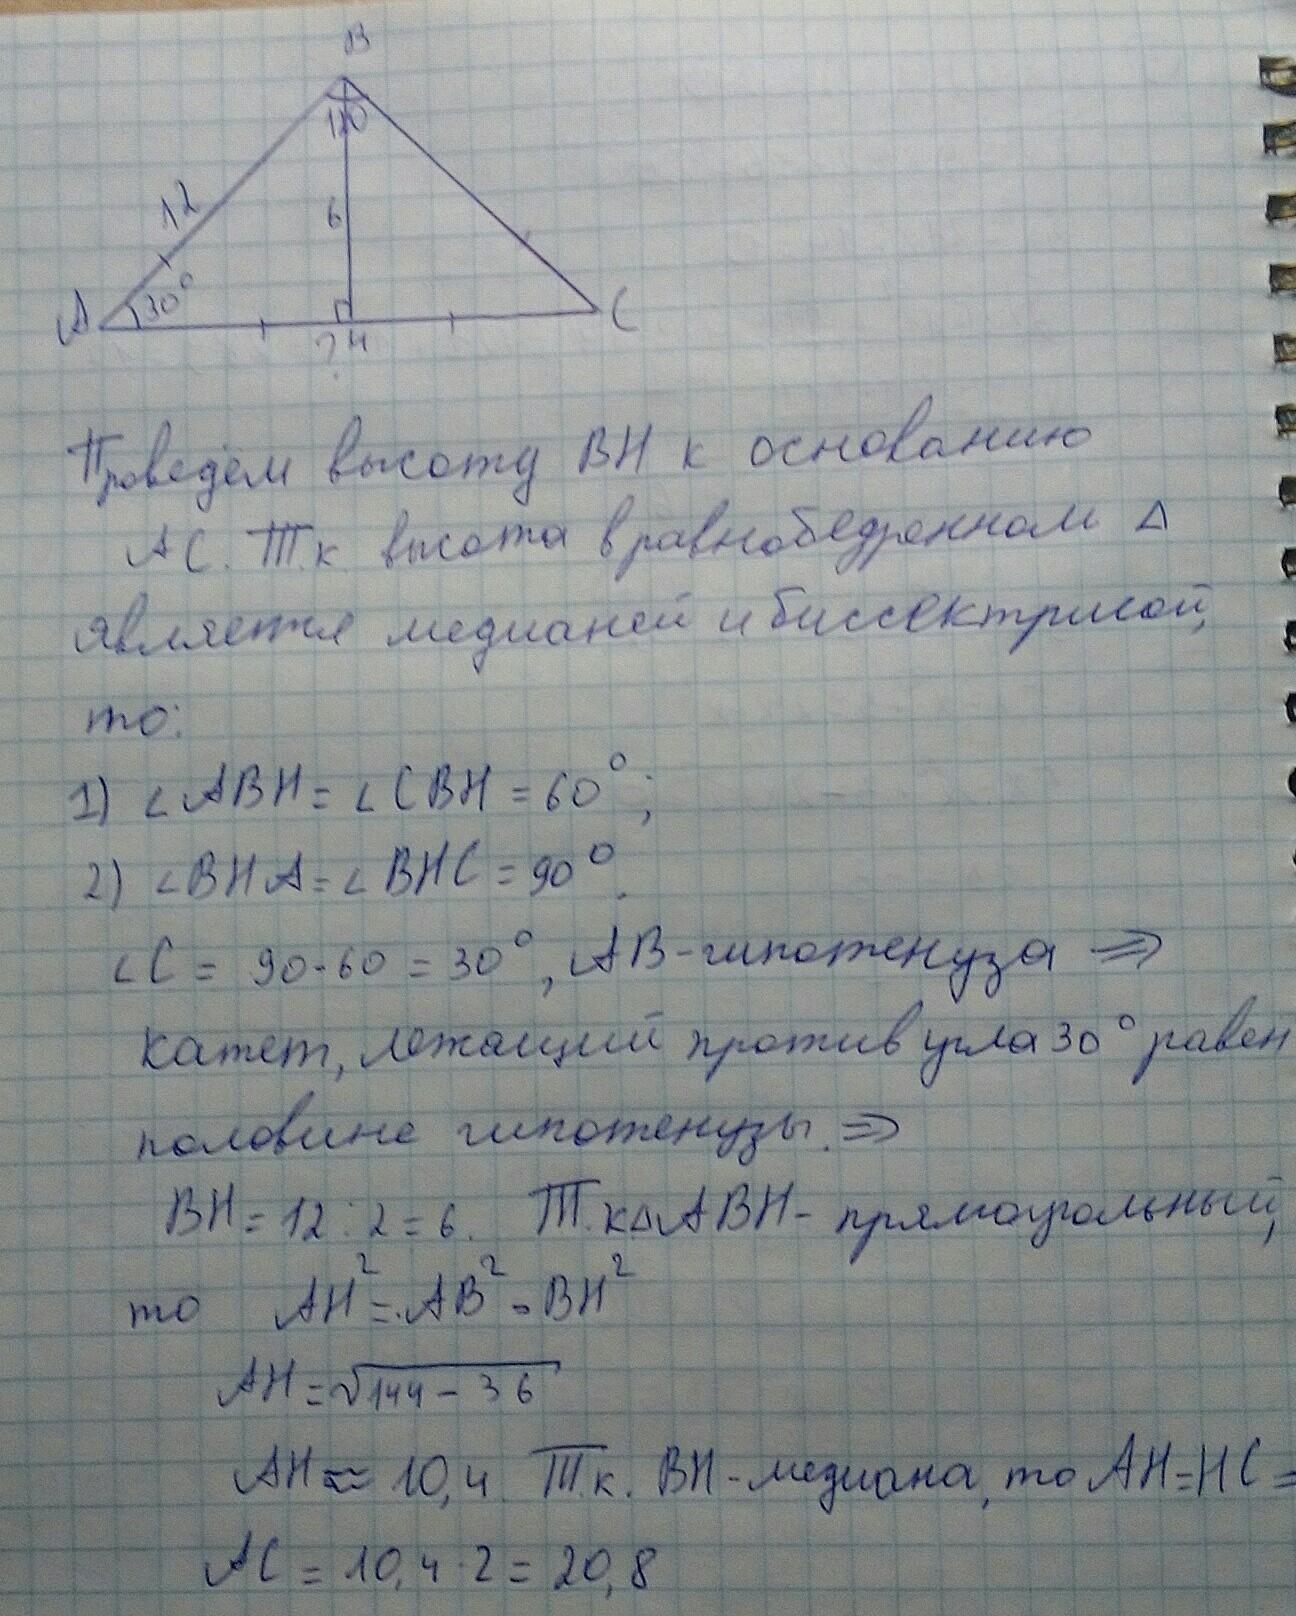 B
120
12
6
A
30°
H
C
?
Проведём высоту BH к основанию
AC. Т.к высота в равнобедренном Δ
является медианой и биссектрисой,
то:
1) ∠ABH = ∠CBH = 60°;
2) ∠BHA = ∠BHC = 90°.
∠C = 90-60 = 30°, AB-гипотенуза ⇒
катет, лежащий против угла 30° равен
половине гипотенузы. ⇒
BH = 12 : 2 = 6. Т.к ΔABH - прямоугольный,
то AH² = AB² - BH²
AH = √144 - 36
AH ≈ 10,4. Т.к. BH - медиана, то AH = HC =
AC = 10,4 · 2 = 20,8